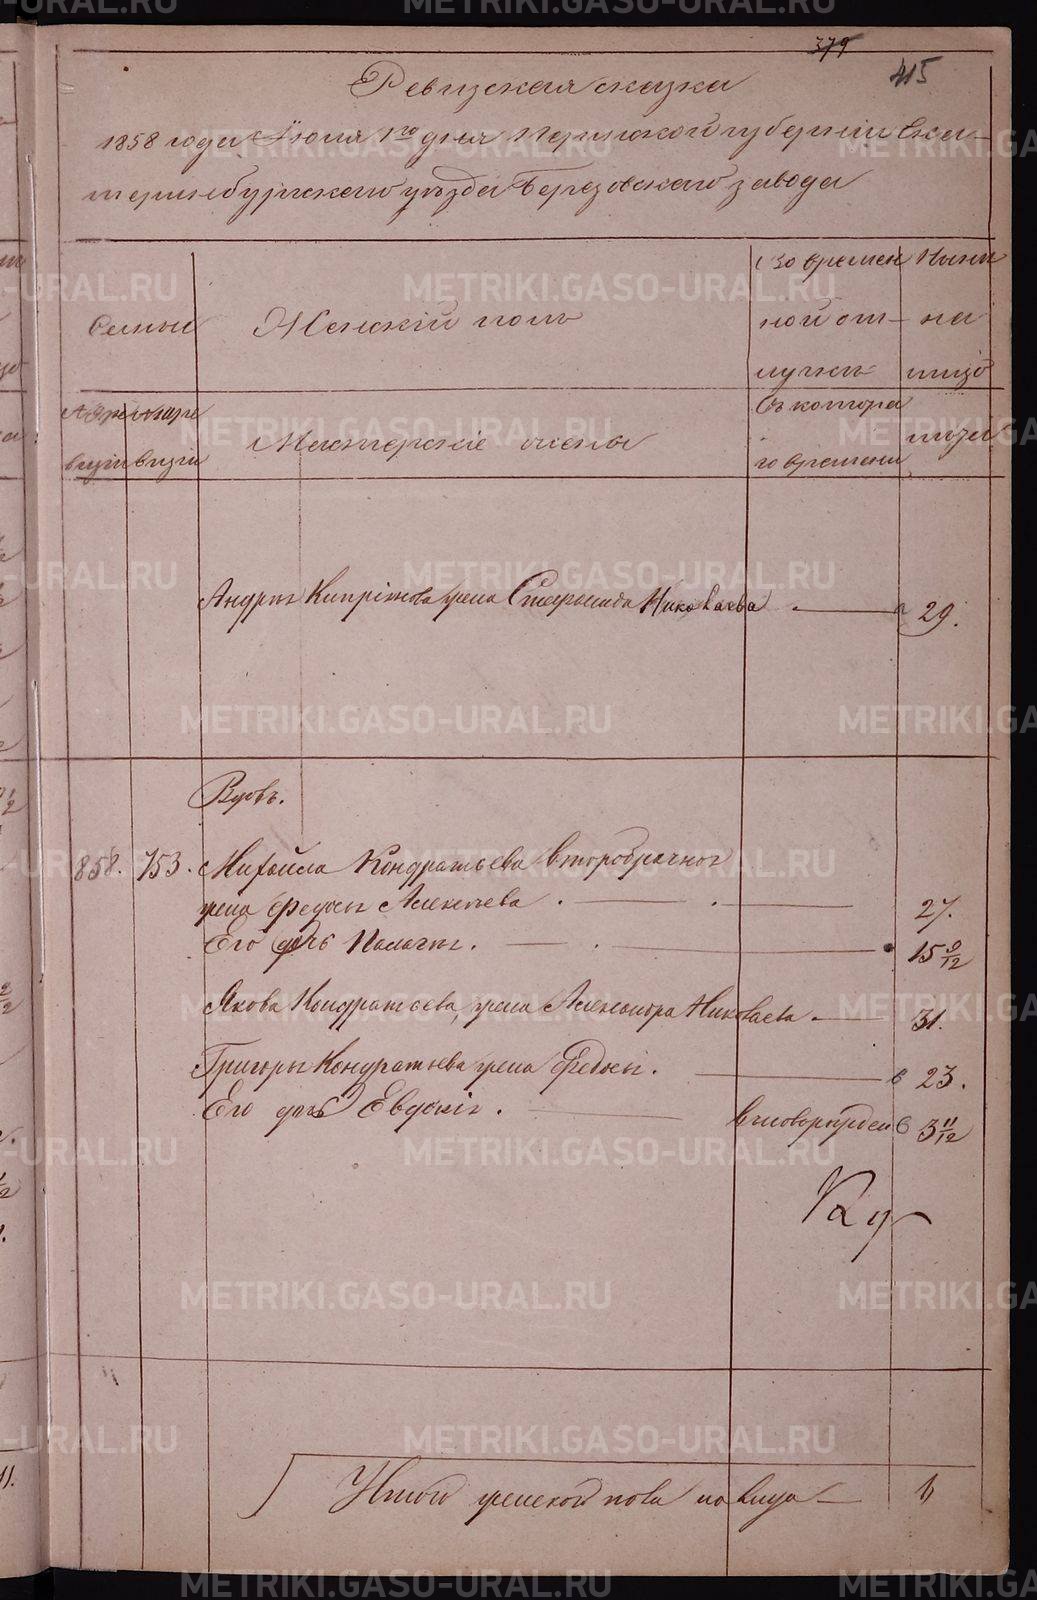 379
415
Ревизская сказка
1858 года Июня 1го дня Пермской губернии Ека-
теринбургского уезда Березовского завода
Семьи
Женский полъ
Во времен
ной от-
лучкѣ
Ныни
на
лицо
Мастерскіе жены
Съ котора
го времени
лѣта
Андрея Кипріянова жена Степанида Николаева 29.
Вдовъ.
858. 753. Михайла Кондратьева второбрачног
жена Федосья Алексѣева 27.
Его дочь Палагея. 15 9/12
Якова Кондратьева, жена Александра Николаева 31.
Григорья Кондратьева жена Федосья. 23.
Его дочь Евдокія. 3 11/12
Итого женского пола на лицо
METRIKI.GASO-URAL.RU